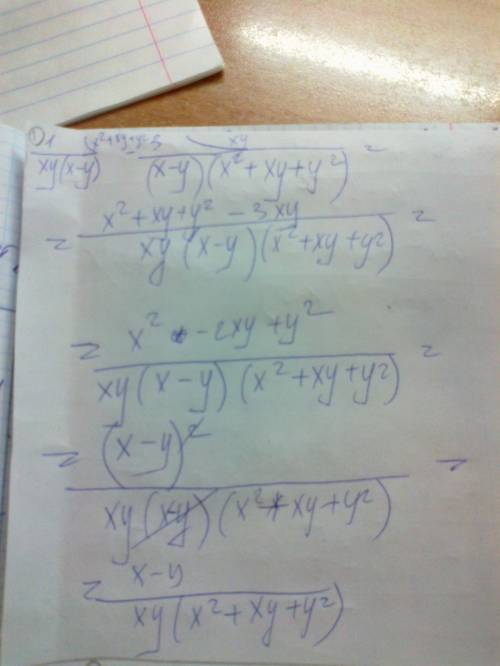 ① 1/(xy(x-y)) ^(x²+xy+y²) - 3/((x-y)(x²+xy+y²)) ^(xy) =
= (x²+xy+y² - 3xy)/(xy(x-y)(x²+xy+y²)) =
= (x² - 2xy + y²)/(xy(x-y)(x²+xy+y²)) =
= (x-y)²/(xy(x-y)(x²+xy+y²)) =
= (x-y)/(xy(x²+xy+y²))